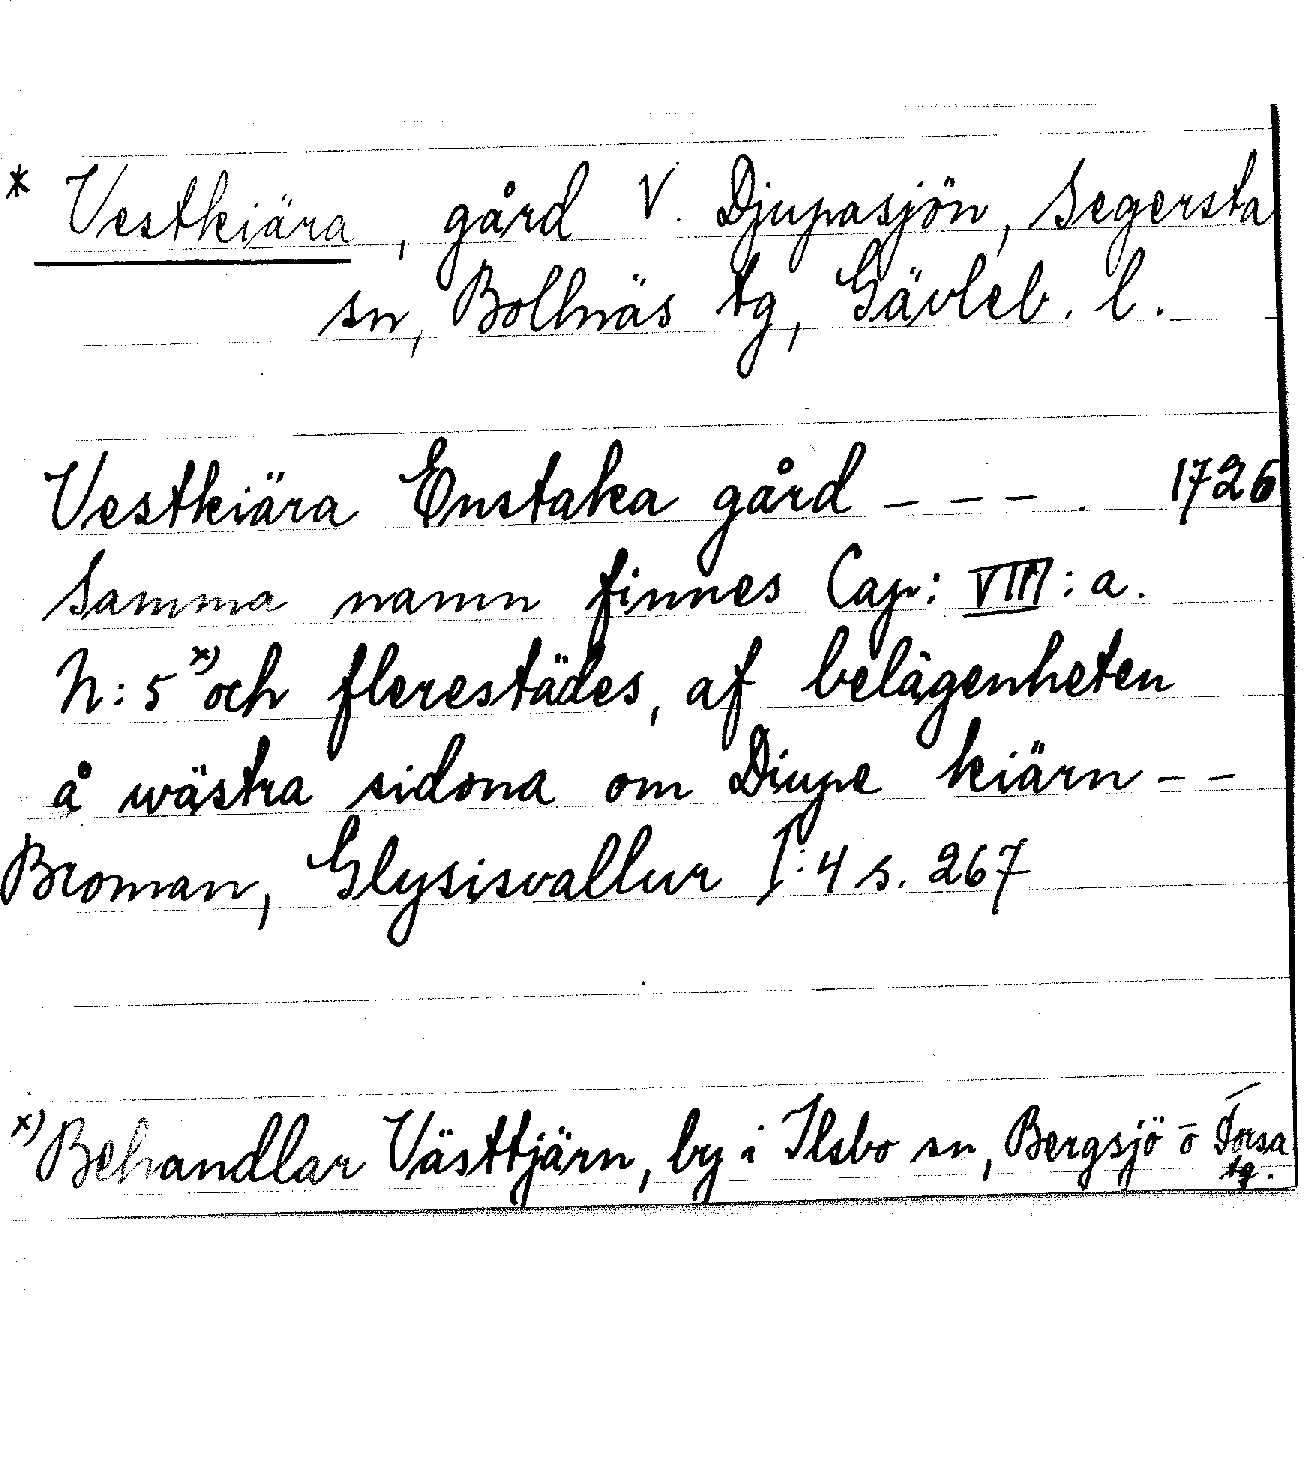 * Vestkiära, gård V. Djupasjön, Segersta
sn, Bollnäs tg, Gävleb. l.
Vestkiära Enstaka gård - - - . 1726
Samma namn finnes Cap: VIII: a.
N: 5 x) och flerestädes, af belägenheten
å wästra sidona om Diupe kiärn - -
Broman, Glysisvallur I: 4 s. 267
x) Behandlar Västtjärn, by i Ilsbo sn, Bergsjö o Forsa
tg.